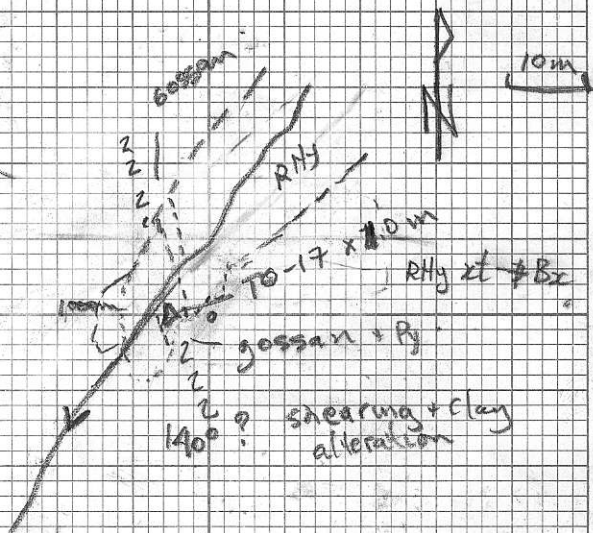 Gossan
N
10m
RHy
TO-17 x 1.0 m
RHy xt Bx
gossan + Py
140° ? shearing + Clay
alteration